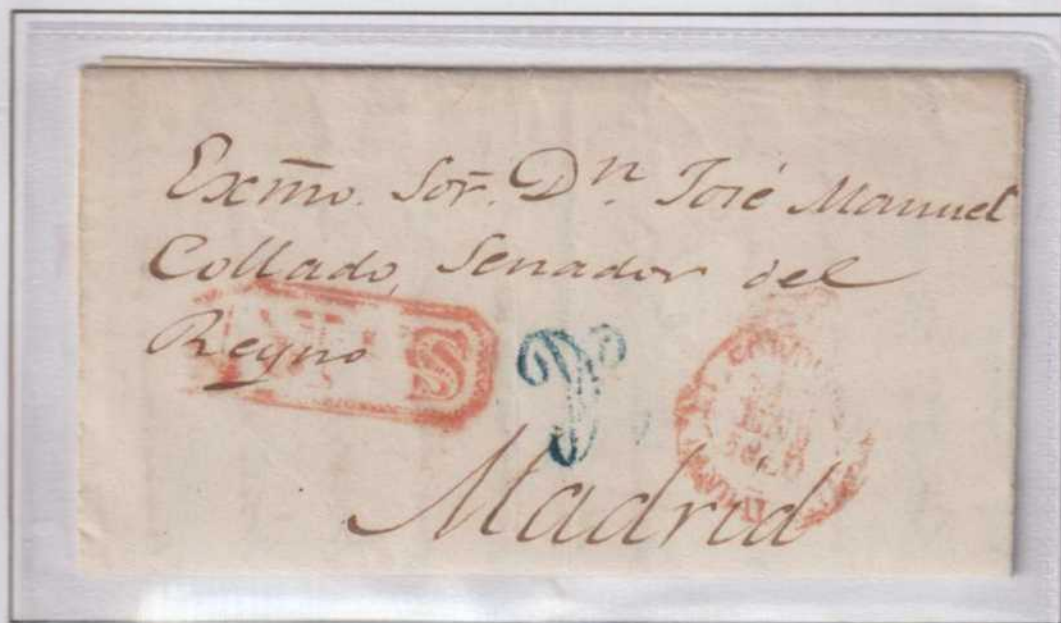 Exm̃o. Sor̃. Dⁿ. José Manuel
Collado, Senador del
Reyno
S
Madrid